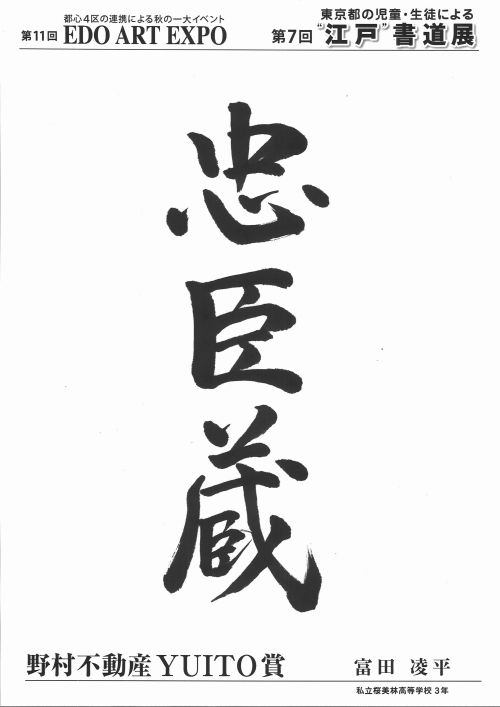 都心4区の連携による秋の一大イベント
第11回 EDO ART EXPO
東京都の児童・生徒による
第7回 "江戸"書道展
忠臣蔵
野村不動産YUITO賞
富田 凌平
私立桜美林高等学校 3年